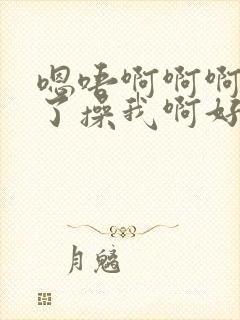 嗯唔啊啊啊
了操我啊好
月魑